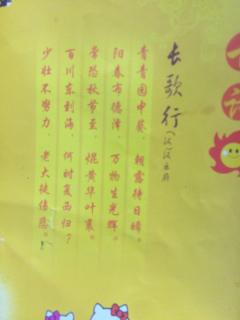 长歌行(汉)汉乐府
青青园中葵，朝露待日晞。
阳春布德泽，万物生光辉。
常恐秋节至，焜黄华叶衰。
百川东到海，何时复西归？
少壮不努力，老大徒伤悲。